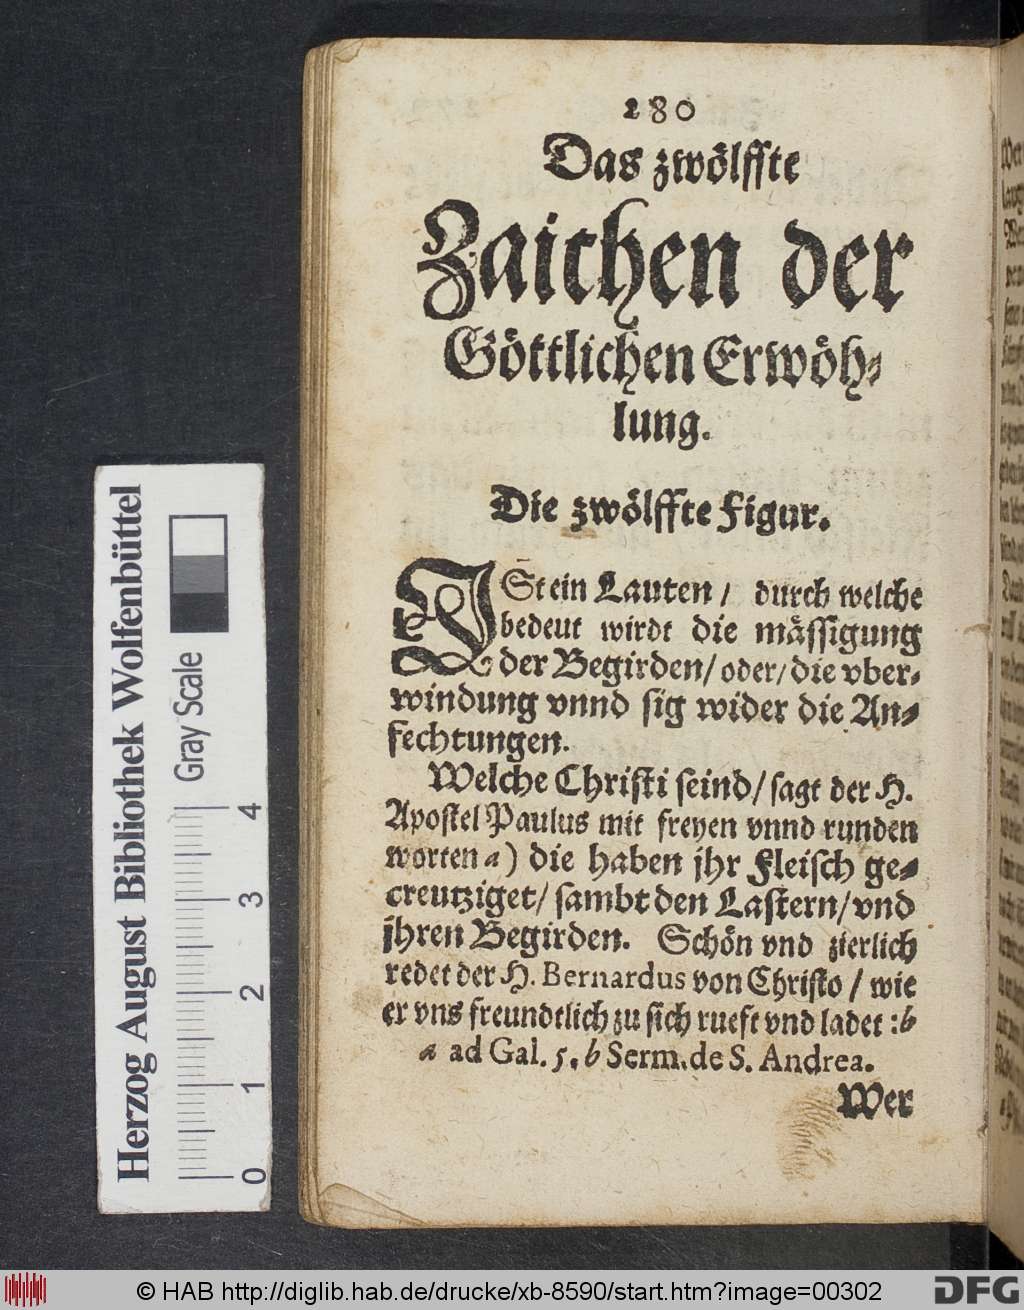 280
Das zwölffte
Zaichen der
Göttlichen Erwöh⸗
lung.
Die zwölffte Figur.
ISt ein Lauten / durch welche
bedeut wirdt die mässigung
der Begirden / oder / die vber⸗
windung vnnd sig wider die An⸗
fechtungen.
Welche Christi seind / sagt der H.
Apostel Paulus mit freyen vnnd runden
worten a) die haben jhr Fleisch ge⸗
creutziget / sambt den Lastern / vnd
jhren Begirden. Schön vnd zierlich
redet der H. Bernardus von Christo / wie
er vns freundtlich zu sich rueft vnd ladet : b
a ad Gal. 5. b Serm. de S. Andrea.
Wer
Herzog August Bibliothek Wolfenbüttel
Gray Scale
0 1 2 3 4
© HAB http://diglib.hab.de/drucke/xb-8590/start.htm?image=00302
DFG